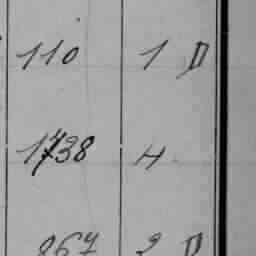 110 1 D
1738 H
867 2 D